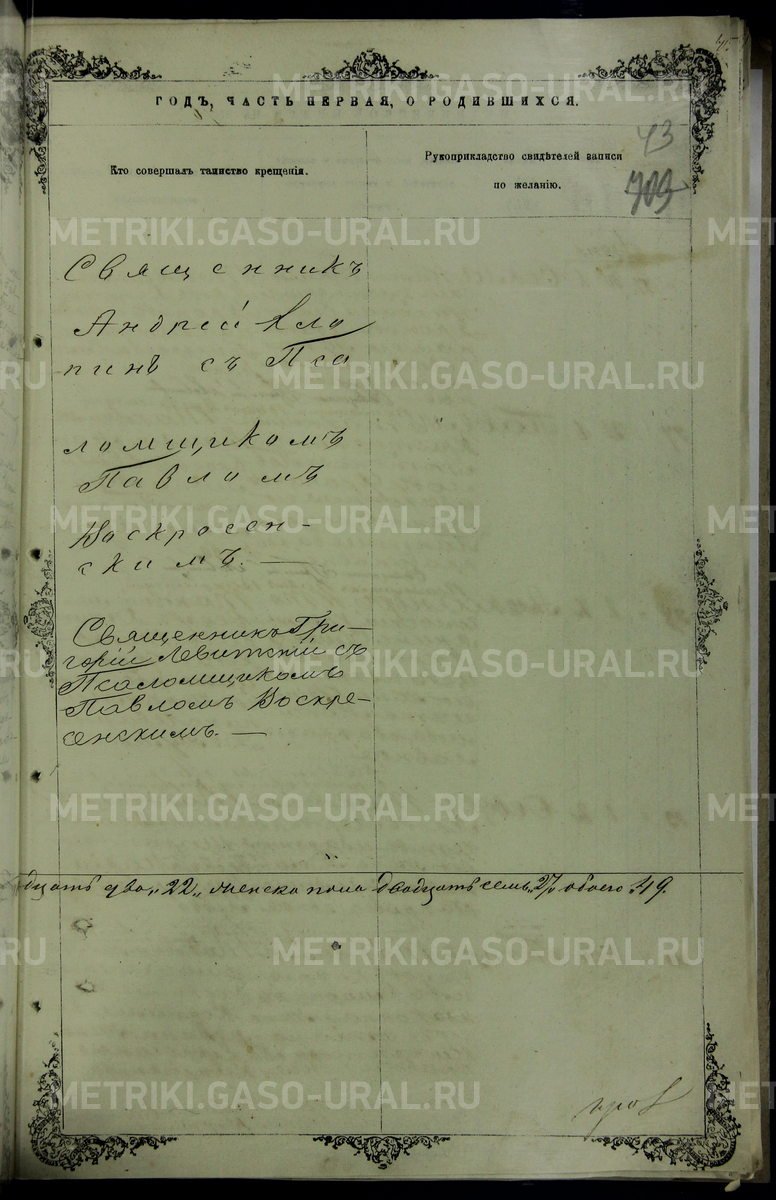 ГОДЪ, ЧАСТЬ ПЕРВАЯ, О РОДИВШИХСЯ.
43
703
Кто совершалъ таинство крещенія.
Рукоприкладство свидѣтелей записи
по желанію.
METRIKI.GASO-URAL.RU
Священникъ
Андрей Хла
пинъ съ Пса
ломщикомъ
Павломъ
Воскресен-
скимъ. —
Священникъ Гри-
горій Левитскій съ
Псаломщикомъ
Павломъ Воскре-
сенскимъ. —
дцать два „22„ женска пола двадцать семь „27„ обоего 49.